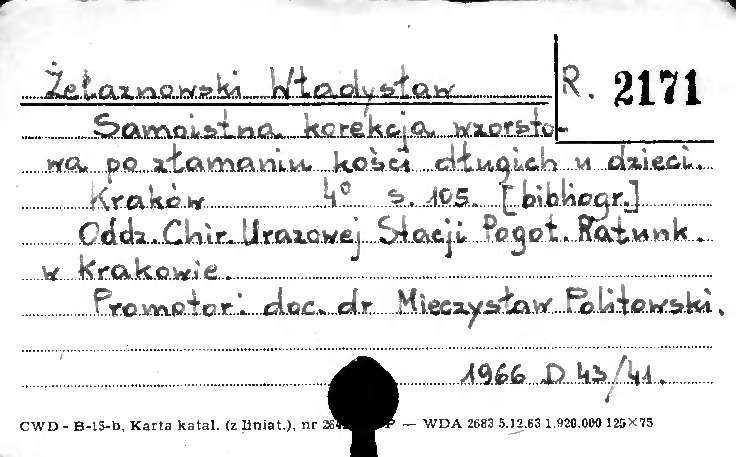 Żelaznowski Władysław
R. 2171
Samoistna korekcja wzorsto-
wa po złamaniu kości długich u dzieci.
Kraków 4° s. 105. [bibliogr.]
Oddz. Chir. Urazowej Stacji Pogot. Ratunk.
w Krakowie.
Promotor: doc. dr Mieczysław Politowski.
1966 D 43/41.
CWD - B-15-b, Karta katal. (z liniat.), nr 264 P — WDA 2683 5.12.63 1.920.000 125×75